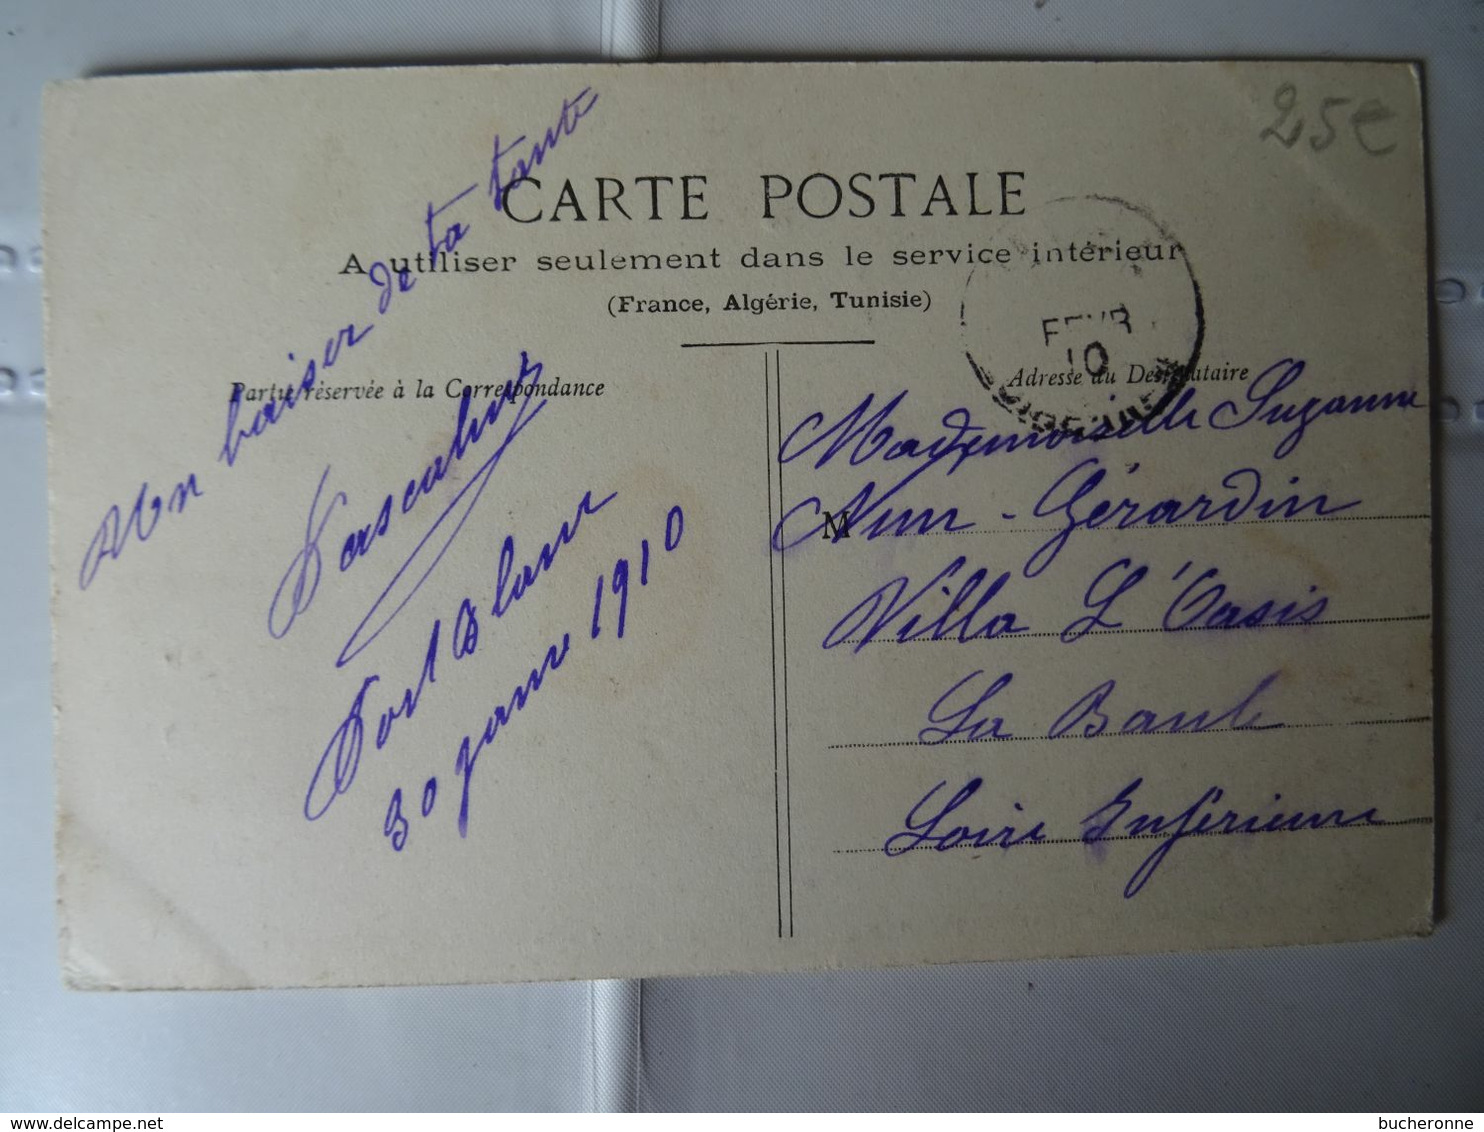 25€
CARTE POSTALE
A utiliser seulement dans le service intérieur
(France, Algérie, Tunisie)
FEVR
10
Partie réservée à la Correspondance
Adresse du Destinataire
Mon baiser
de ta tante
Port Blanc
30 janv 1910
Mademoiselle Suzanne
M
Gérardin
Villa L'Oasis
La Baule
Loire Inférieure
delcampe.net
bucheronne